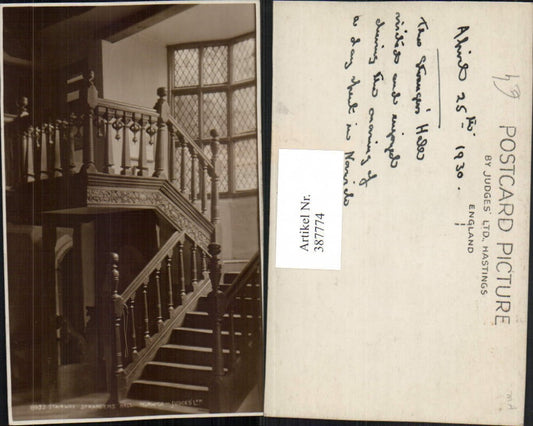 6932 STAIRWAY STRANGERS HALL NORWICH JUDGES LTD
April 25th 1930.
The Stranger's Hall
visited and enjoyed
during the evening of
a day spent in Norwich
Artikel Nr.
387774
POSTCARD PICTURE
BY JUDGES' LTD., HASTINGS
ENGLAND